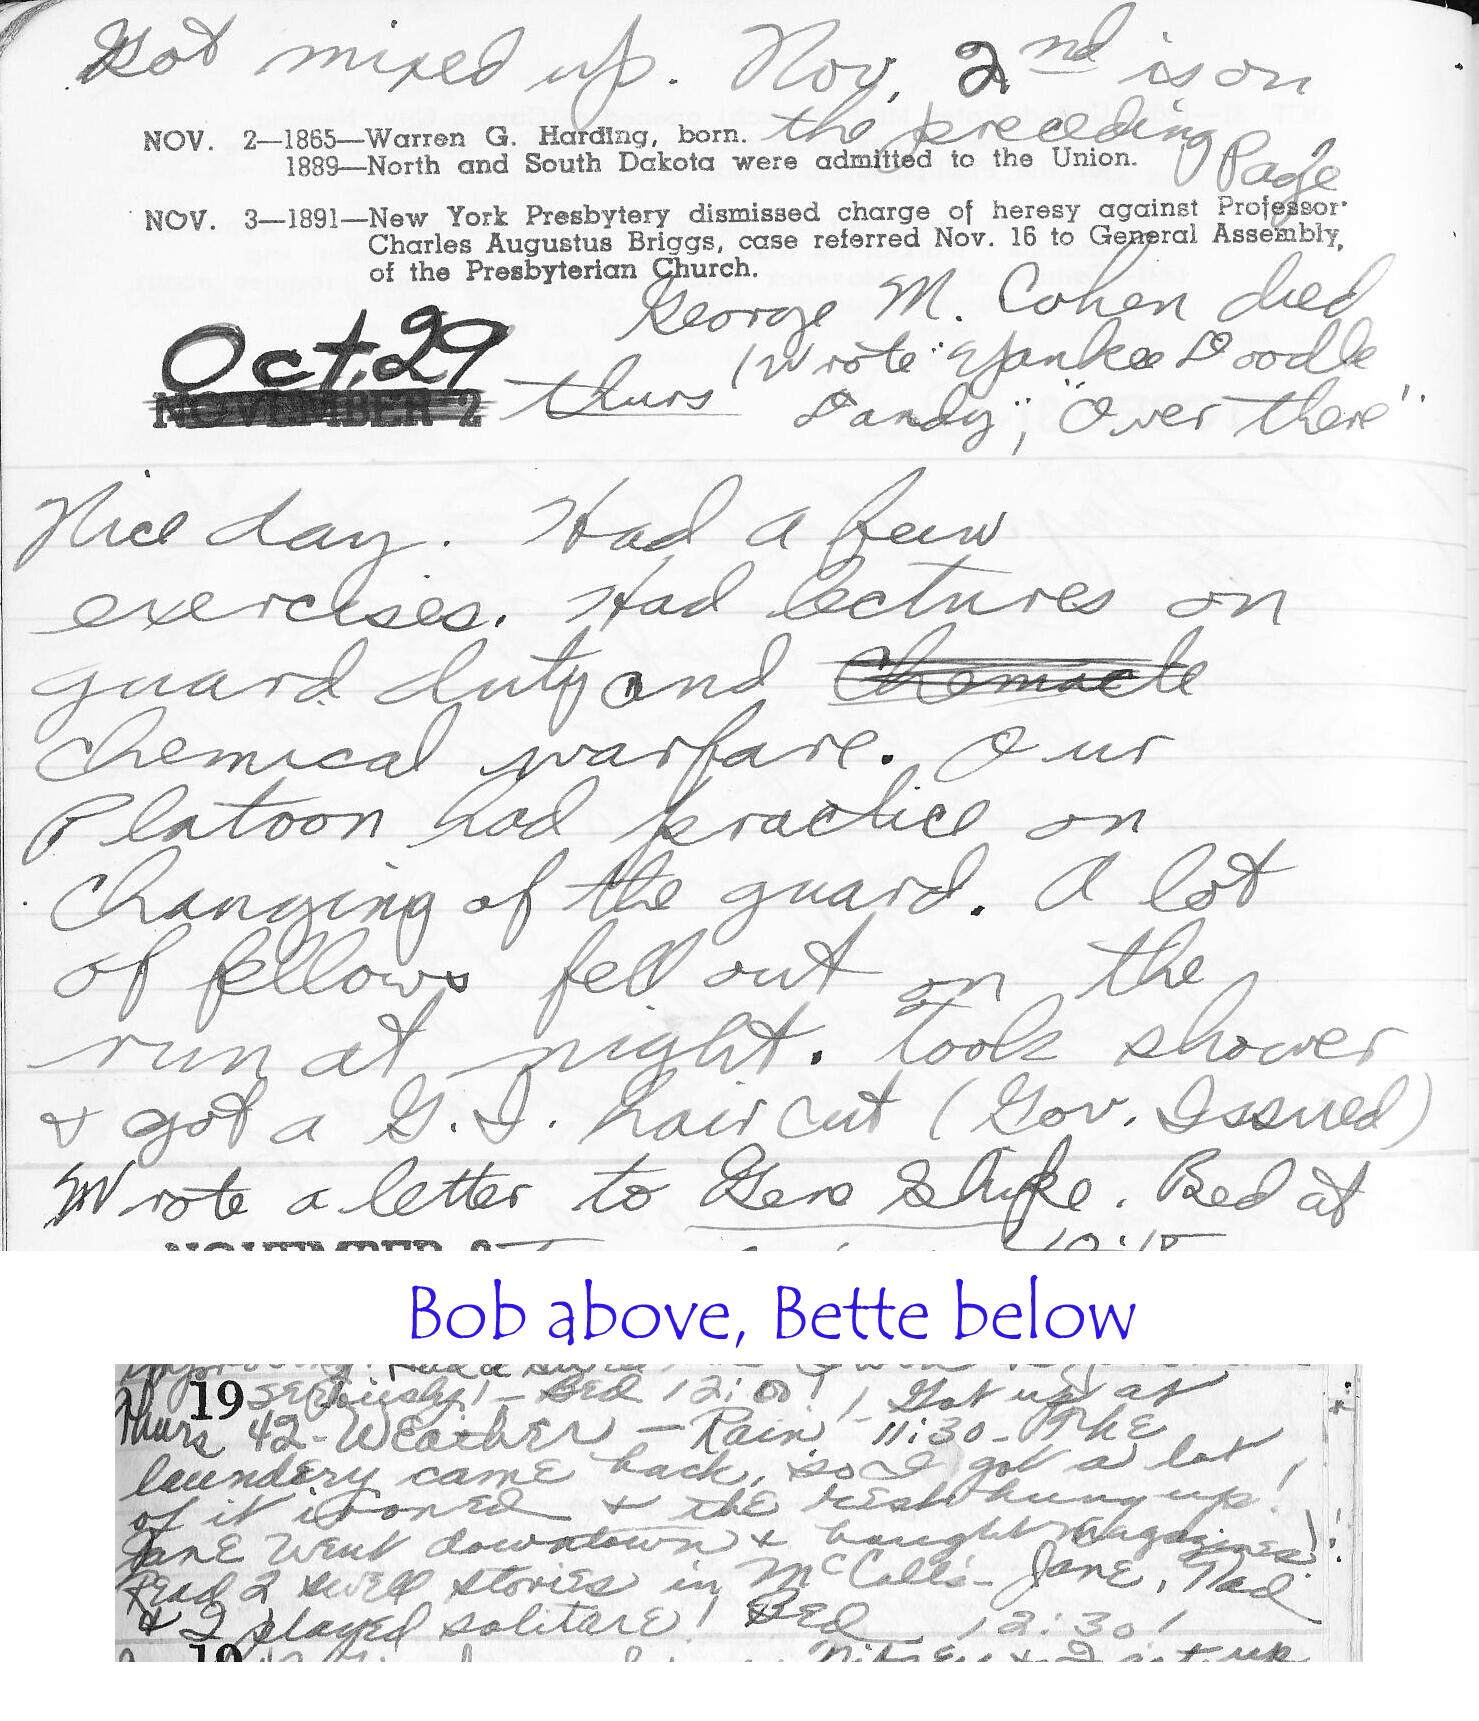 Got mixed up. Nov. 2nd is on
the preceding
Page
NOV. 2—1865—Warren G. Harding, born.
1889—North and South Dakota were admitted to the Union.
NOV. 3—1891—New York Presbytery dismissed charge of heresy against Professor
Charles Augustus Briggs, case referred Nov. 16 to General Assembly,
of the Presbyterian Church.
George M. Cohen died
(Wrote "Yankee Doodle
Dandy", "Over there"
Oct. 29
NOVEMBER 2 Thurs
Nice day. Had a few
exercises. Had lectures on
guard duty and
chemical warfare. Our
Platoon had practice on
changing of the guard. A lot
of fellows fell out on the
run at night. Took shower
& got a G.I. hair cut (Gov. Issued)
Wrote a letter to Gene. Bed at
10:15
Bob above, Bette below
seriously! - Bed 12:00! Got up at
Thurs 1942 - Weather - Rain - 11:30 - The
laundery came back, so I got a lot
of it ironed & the rest hung up!
Jane went downtown & bought magazines!
Read 2 swell stories in McCall's - Jane, Dad
& I played solitare! Bed 12:30!